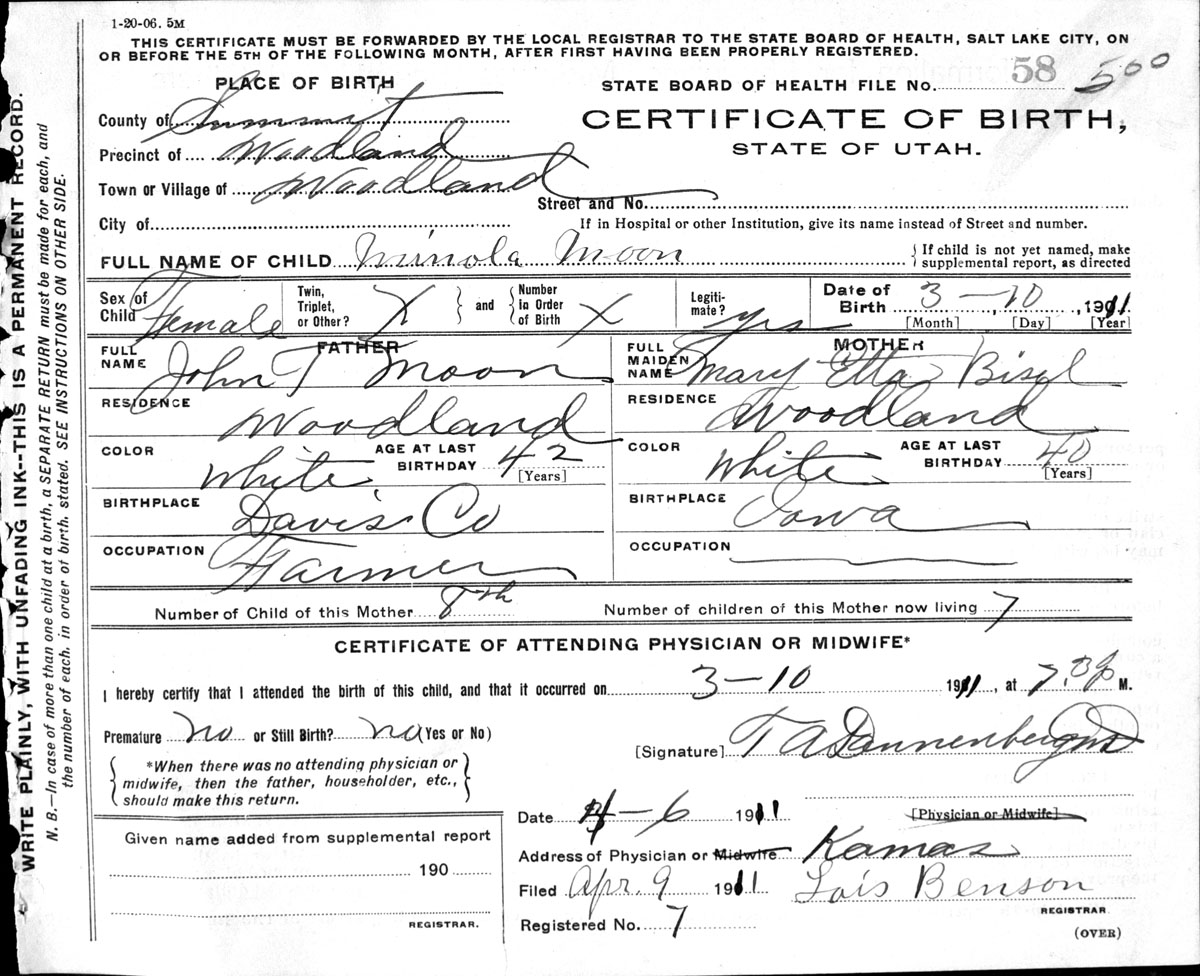 1-20-06. 5M
THIS CERTIFICATE MUST BE FORWARDED BY THE LOCAL REGISTRAR TO THE STATE BOARD OF HEALTH, SALT LAKE CITY, ON
OR BEFORE THE 5TH OF THE FOLLOWING MONTH, AFTER FIRST HAVING BEEN PROPERLY REGISTERED.
WRITE PLAINLY, WITH UNFADING INK--THIS IS A PERMANENT RECORD.
N. B.—In case of more than one child at a birth, a SEPARATE RETURN must be made for each, and
the number of each, in order of birth, stated. SEE INSTRUCTIONS ON OTHER SIDE.
PLACE OF BIRTH
STATE BOARD OF HEALTH FILE No. 58 500
County of Summit
CERTIFICATE OF BIRTH,
Precinct of Woodland
STATE OF UTAH.
Town or Village of Woodland
Street and No.
City of
If in Hospital or other Institution, give its name instead of Street and number.
FULL NAME OF CHILD Minola Moon
{If child is not yet named, make
supplemental report, as directed
Sex of Child Female
Twin, Triplet, or Other? X } and { Number in Order of Birth X
Legiti-mate? yes
Date of Birth 3-10, 1911
[Month] [Day] [Year]
FATHER
FULL NAME John T Moon
RESIDENCE Woodland
COLOR White AGE AT LAST BIRTHDAY 42
[Years]
BIRTHPLACE Davis Co
OCCUPATION Farmer
MOTHER
FULL MAIDEN NAME Mary Etta Bisel
RESIDENCE Woodland
COLOR White AGE AT LAST BIRTHDAY 40
[Years]
BIRTHPLACE Iowa
OCCUPATION
Number of Child of this Mother 8th Number of children of this Mother now living 7
CERTIFICATE OF ATTENDING PHYSICIAN OR MIDWIFE*
I hereby certify that I attended the birth of this child, and that it occurred on 3-10 1911, at M.
Premature no or Still Birth? no (Yes or No)
[Signature] T A Dannenberg
{*When there was no attending physician or
midwife, then the father, householder, etc.,
should make this return.}
Date 4-6 1911
[Physician or Midwife]
Given name added from supplemental report
190
REGISTRAR.
Address of Physician or Midwife Kamas
Filed Apr. 9 1911 Lois Benson
REGISTRAR
Registered No. 7
(OVER)